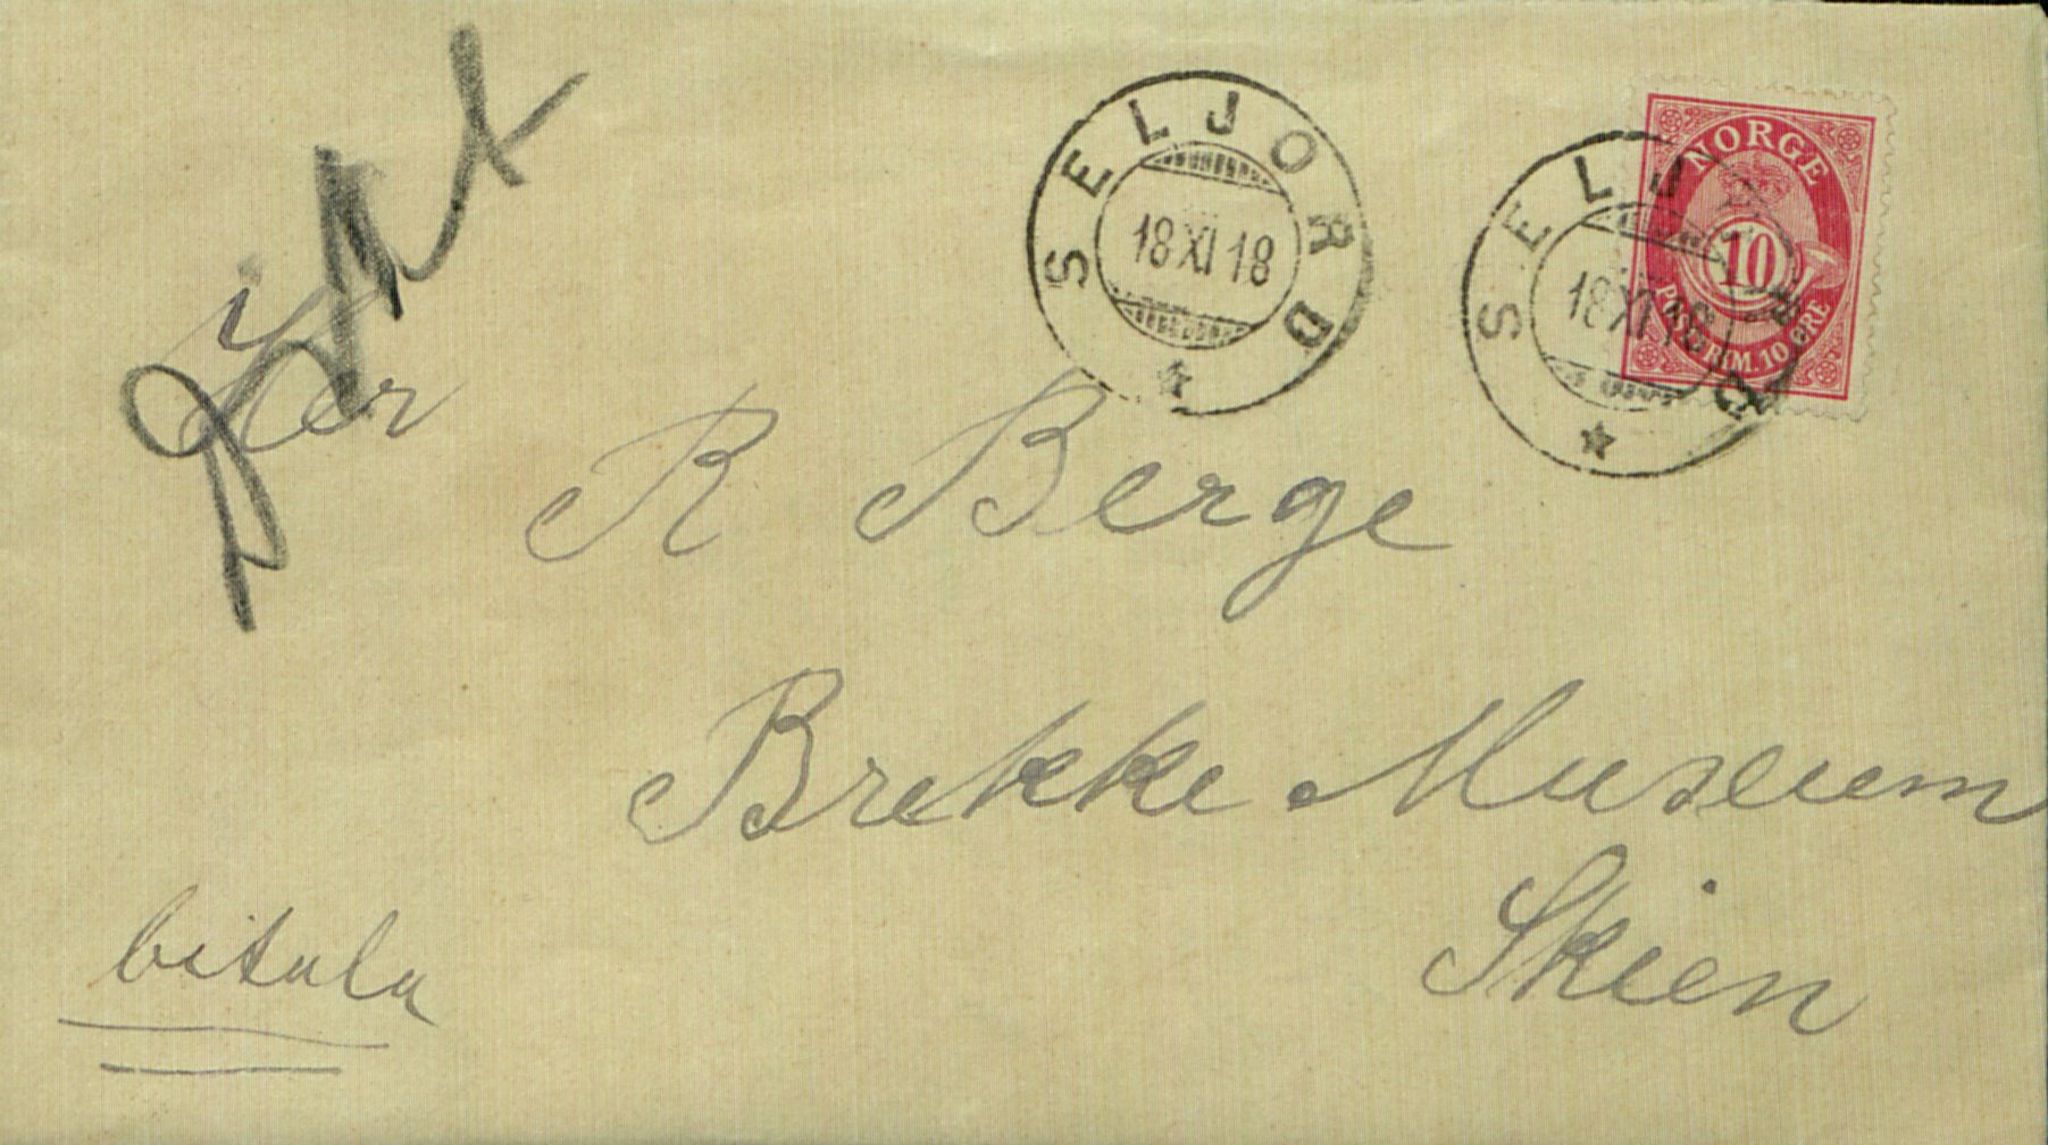 SELJORD
18 XI 18
SELJORD
18 XI 18
NORGE
10
POSTFRIM. 10 ØRE
Herr
R Berge
Brekke Museum
Skien
bitala